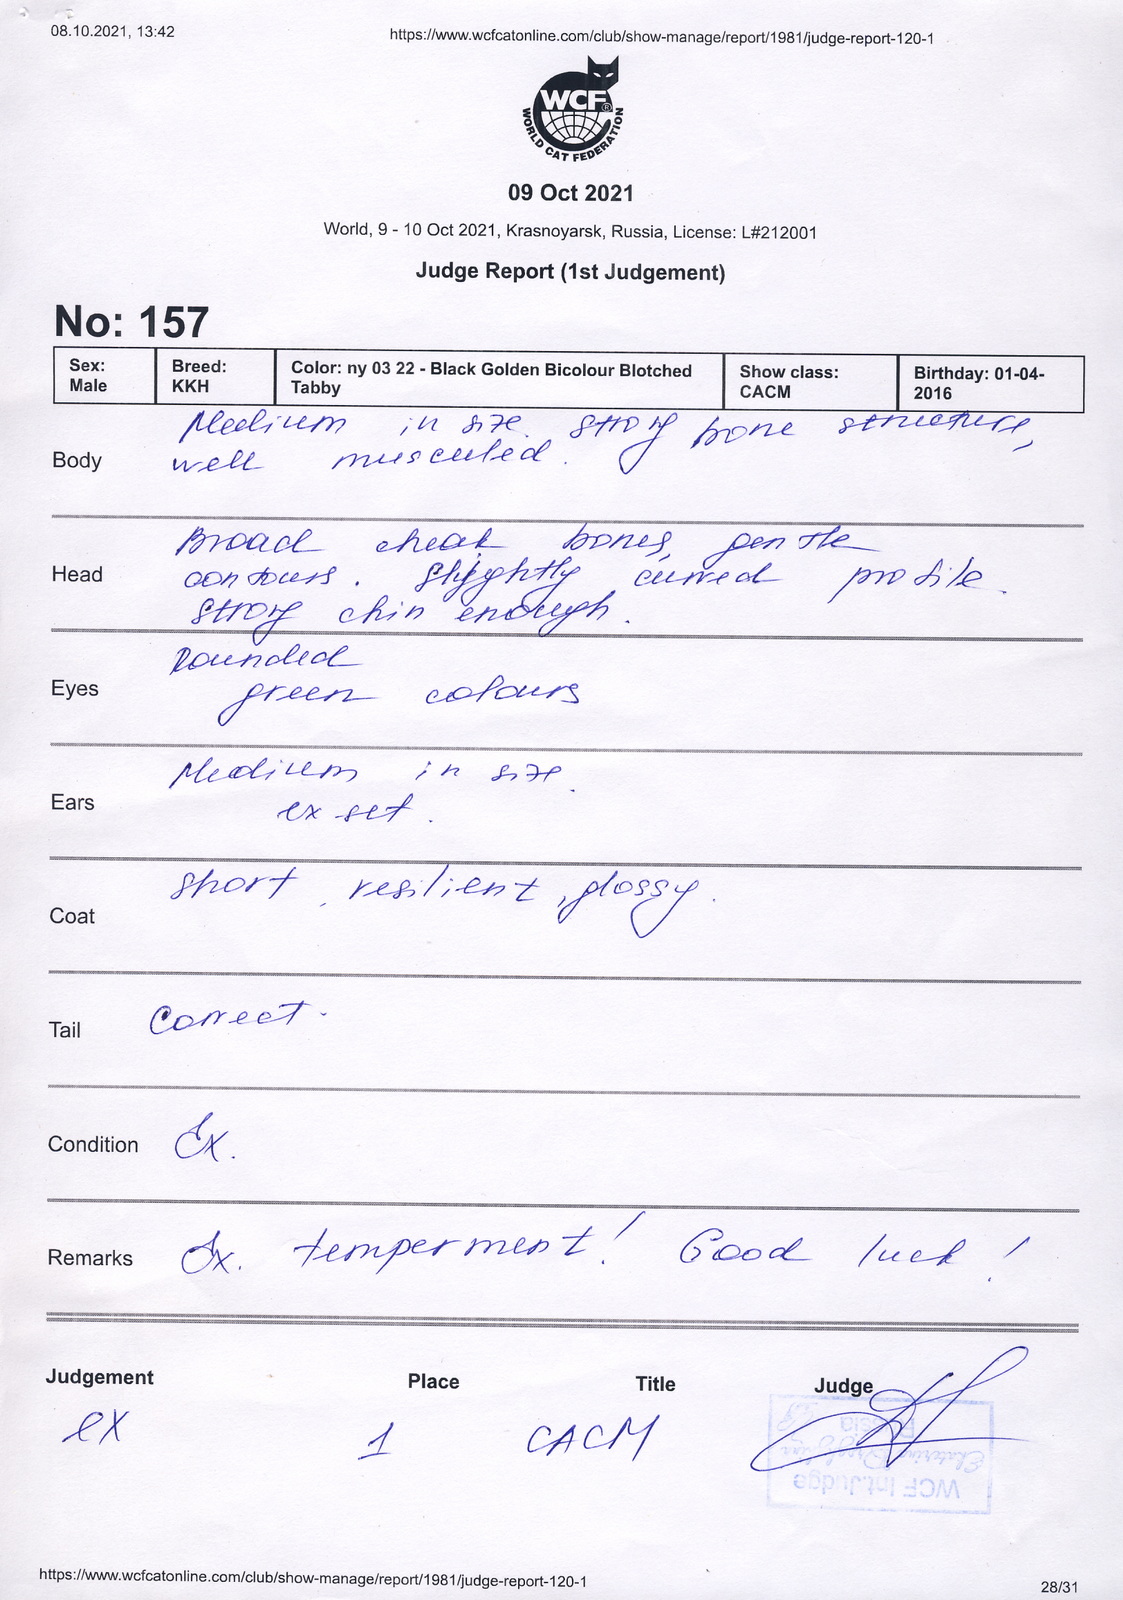 08.10.2021, 13:42
https://www.wcfcatonline.com/club/show-manage/report/1981/judge-report-120-1
WCF®
WORLD CAT FEDERATION
09 Oct 2021
World, 9 - 10 Oct 2021, Krasnoyarsk, Russia, License: L#212001
Judge Report (1st Judgement)
No: 157
Sex: Male
Breed: KKH
Color: ny 03 22 - Black Golden Bicolour Blotched Tabby
Show class: CACM
Birthday: 01-04-2016
Body
Medium in size. strong bone structure,
well musculed.
Head
Broad cheak bones, gentle
contours. Slightly curved profile.
strong chin enough.
Eyes
Rounded
green colours
Ears
Medium in size.
ex set.
Coat
short, resilient, glossy.
Tail
Correct.
Condition
Ex.
Remarks
Ex. temperment! Good luck!
Judgement Place Title Judge
ex 1 CACM
WCF Int.Judge
Russia
https://www.wcfcatonline.com/club/show-manage/report/1981/judge-report-120-1
28/31